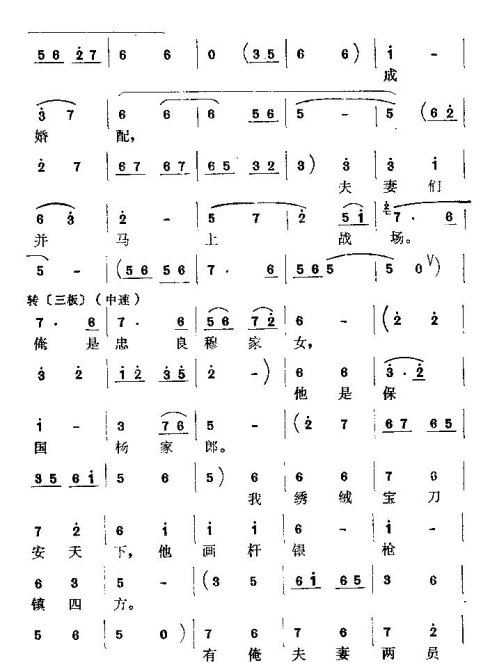 5 6 2 7 | 6 6 | 0 (3 5 | 6 6) | i -
成
3 7 | 6 6 | 6 5 6 | 5 - | 5 (6 2
婚 配,
2 7 | 6 7 6 7 | 6 5 3 2 | 3) 3 | 3 i
夫 妻 们
6 3 | 2 - | 5 7 | 2 5 i | 7 · 6
并 马 上 战 场。
5 - | (5 6 5 6 | 7 · 6 | 5 6 5 5 | 5 0 V)
转〔三板〕(中速)
7 · 6 | 7 · 5 | 5 6 7 2 | 6 - | (2 2
俺 是 忠 良 穆 家 女,
3 2 | i 2 3 5 | 2 -) | 6 6 | 3 · 2
他 是 保
i - | 3 7 6 | 5 - | (2 7 | 6 7 6 5
国 杨 家 郎。
3 5 6 i | 5 6 | 5) 6 | 6 6 | 7 6
我 绣 绒 宝 刀
7 2 | 6 i | i i | 6 - | i i
安 天 下, 他 画 杆 银 枪
6 3 | 5 - | (3 5 | 6 i 6 5 | 3 6
镇 四 方。
5 6 | 5 0) | 7 6 | 6 7 | 6 2
有 俺 夫 妻 两 员